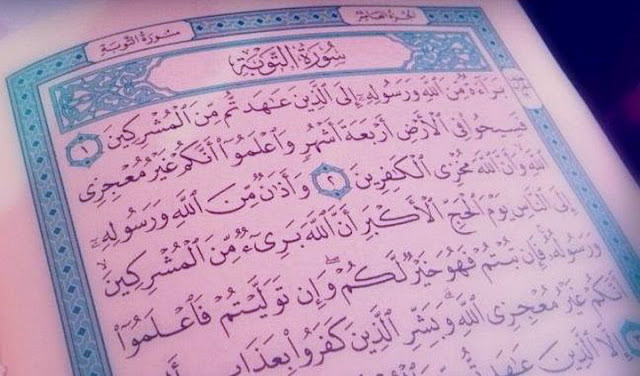 الجزء العاشر
سورة التوبة
سُورَةُ التَّوْبَةِ
بَرَآءَةٌ مِّنَ ٱللَّهِ وَرَسُولِهِۦٓ إِلَى ٱلَّذِينَ عَـٰهَدتُّم مِّنَ ٱلْمُشْرِكِينَ ١
فَسِيحُوا۟ فِى ٱلْأَرْضِ أَرْبَعَةَ أَشْهُرٍ وَٱعْلَمُوٓا۟ أَنَّكُمْ غَيْرُ مُعْجِزِى
ٱللَّهِ وَأَنَّ ٱللَّهَ مُخْزِى ٱلْكَـٰفِرِينَ ٢ وَأَذَٰنٌ مِّنَ ٱللَّهِ وَرَسُولِهِۦٓ
إِلَى ٱلنَّاسِ يَوْمَ ٱلْحَجِّ ٱلْأَكْبَرِ أَنَّ ٱللَّهَ بَرِىٓءٌ مِّنَ ٱلْمُشْرِكِينَ
وَرَسُولُهُۥ فَإِن تُبْتُمْ فَهُوَ خَيْرٌ لَّكُمْ وَإِن تَوَلَّيْتُمْ فَٱعْلَمُوٓا۟
أَنَّكُمْ غَيْرُ مُعْجِزِى ٱللَّهِ وَبَشِّرِ ٱلَّذِينَ كَفَرُوا۟ بِعَذَابٍ
إِلَّا ٱلَّذِينَ عَـٰهَدتُّم